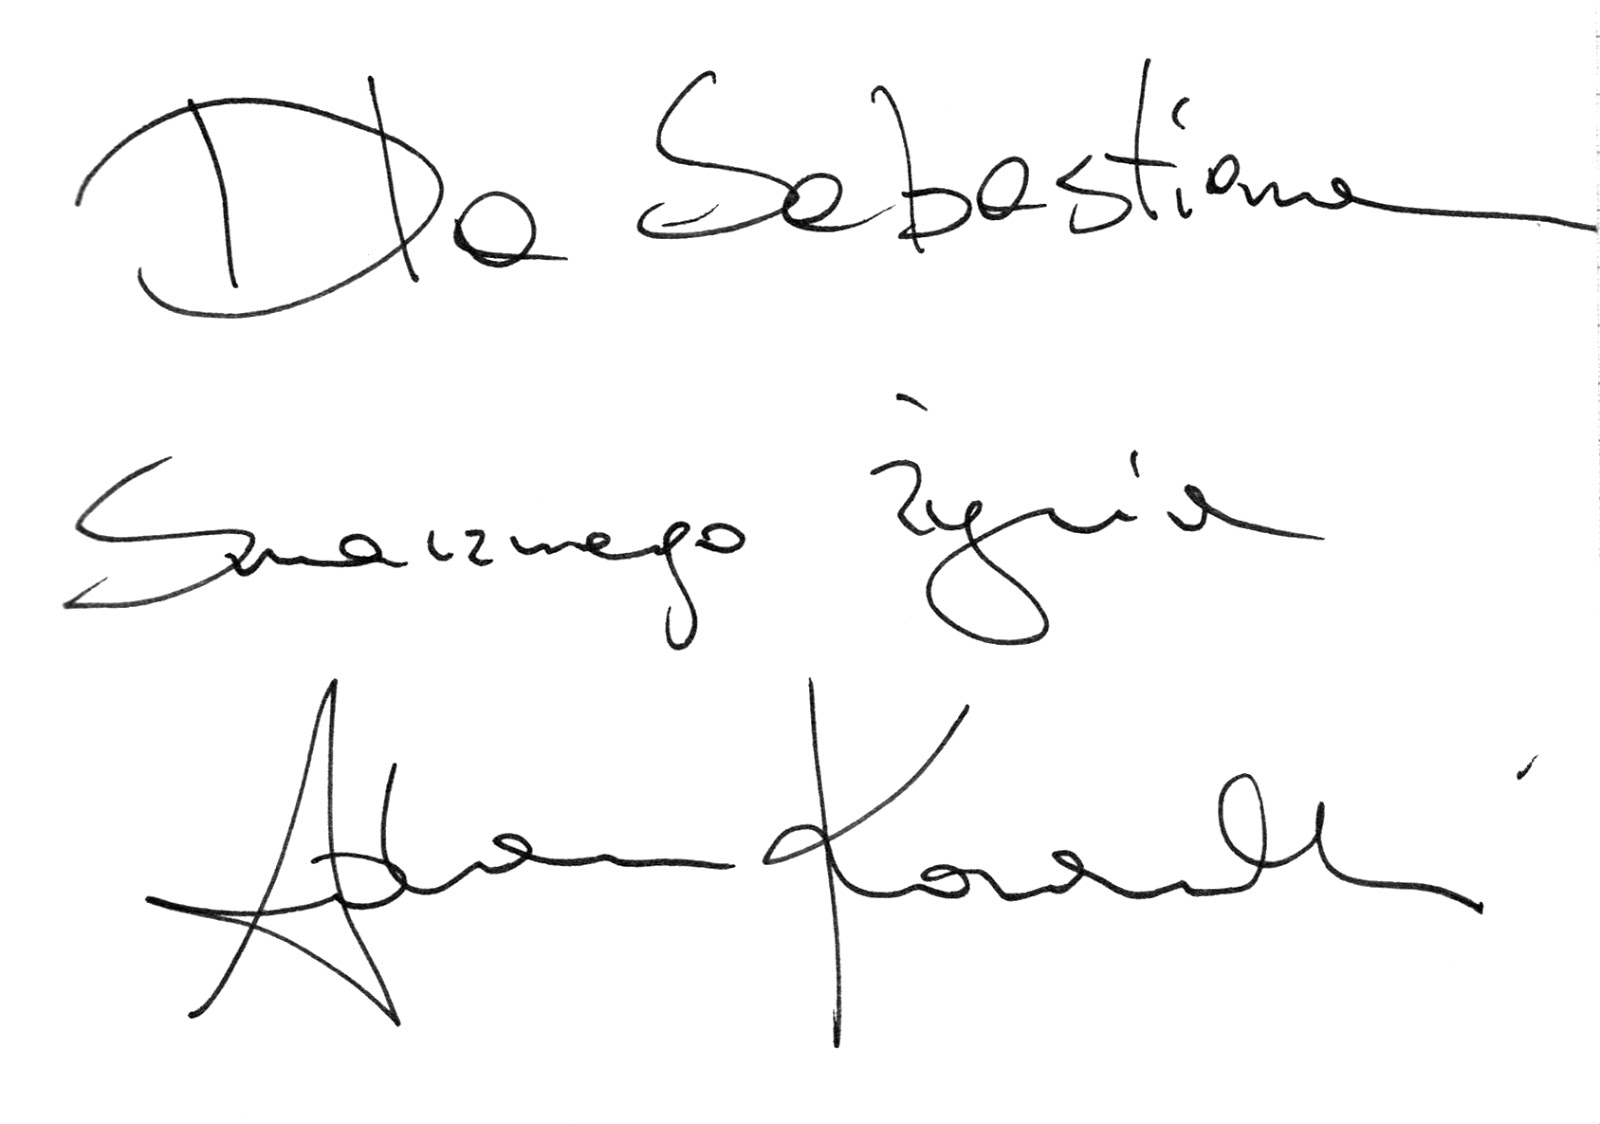 Dla Sebastiana
Smacznego żyćia
Adam Kowalski